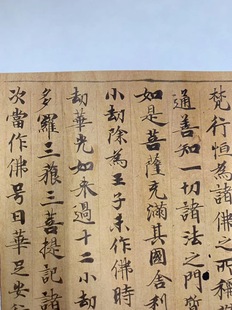 梵行恒為諸佛之所稱
通善知一切諸法之門
如是菩薩充滿其國舍利
小劫除為王子未作佛時
劫華光如来過十二小劫
多羅三藐三菩提記諸
次當作佛号曰華足安